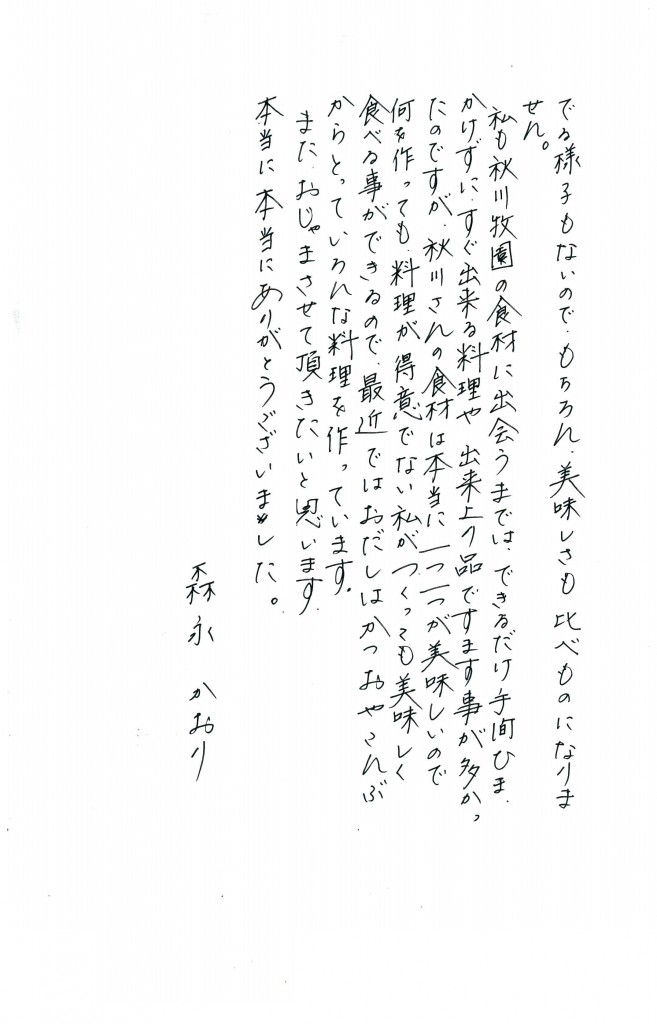 でる様子もないので、もちろん、美味しさも比べものになりま
せん。
私も秋川牧園の食材に出会うまでは、できるだけ手間ひま、
かけずに、すぐ出来る料理や、出来上り品ですます事が多かっ
たのですが、秋川さんの食材は本当に一つ一つが美味しいので
何を作っても、料理が得意でない私がつくっても美味しく
食べる事ができるので、最近ではおだしはかつおやこんぶ
からとっていろんな料理を作っています。
また、おじゃまさせて頂きたいと思います。
本当に本当にありがとうございました。
森永 かおり